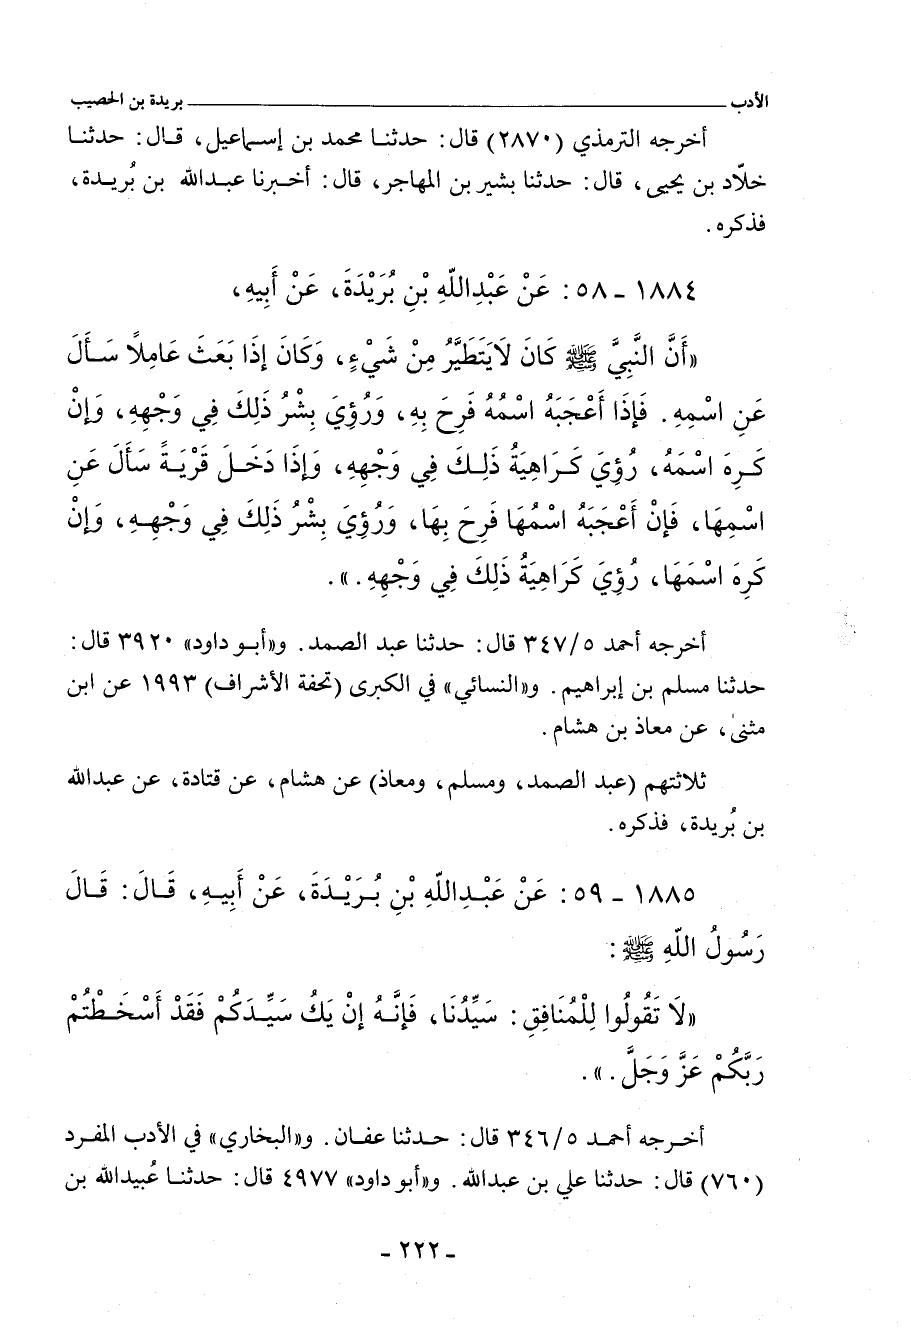 الأدب ــــــــــــــــــــ بريدة بن الحصيب
أخرجه الترمذي (٢٨٧٠) قال: حدثنا محمد بن إسماعيل، قال: حدثنا
خلّاد بن يحيى، قال: حدثنا بشير بن المهاجر، قال: أخبرنا عبدالله بن بُريدة،
فذكره.
١٨٨٤ - ٥٨: عَنْ عَبْدِاللّهِ بْنِ بُرَيْدَةَ، عَنْ أَبِيهِ،
«أَنَّ النَّبِيَّ ﷺ كَانَ لَايَتَطَيَّرُ مِنْ شَيْءٍ، وَكَانَ إِذَا بَعَثَ عَامِلاً سَأَلَ
عَنِ اسْمِهِ. فَإِذَا أَعْجَبَهُ اسْمُهُ فَرِحَ بِهِ، وَرُؤِيَ بِشْرُ ذَلِكَ فِي وَجْهِهِ، وَإِنْ
كَرِهَ اسْمَهُ، رُؤِيَ كَرَاهِيَةُ ذَلِكَ فِي وَجْهِهِ، وَإِذَا دَخَلَ قَرْيَةً سَأَلَ عَنِ
اسْمِهَا، فَإِنْ أَعْجَبَهُ اسْمُهَا فَرِحَ بِهَا، وَرُؤِيَ بِشْرُ ذَلِكَ فِي وَجْهِهِ، وَإِنْ
كَرِهَ اسْمَهَا، رُؤِيَ كَرَاهِيَةُ ذَلِكَ فِي وَجْهِهِ.».
أخرجه أحمد ٣٤٧/٥ قال: حدثنا عبد الصمد. و«أبو داود» ٣٩٢٠ قال:
حدثنا مسلم بن إبراهيم. و«النسائي» في الكبرى (تحفة الأشراف) ١٩٩٣ عن ابن
مثنىٰ، عن معاذ بن هشام.
ثلاثتهم (عبد الصمد، ومسلم، ومعاذ) عن هشام، عن قتادة، عن عبدالله
بن بُريدة، فذكره.
١٨٨٥ - ٥٩: عَنْ عَبْدِاللّهِ بْنِ بُرَيْدَةَ، عَنْ أَبِيهِ، قَالَ: قَالَ
رَسُولُ اللّهِ ﷺ:
«لَا تَقُولُوا لِلْمُنَافِقِ: سَيِّدُنَا، فَإِنَّهُ إِنْ يَكُ سَيِّدَكُمْ فَقَدْ أَسْخَطْتُمْ
رَبَّكُمْ عَزَّ وَجَلَّ.».
أخرجه أحمد ٣٤٦/٥ قال: حدثنا عفان. و«البخاري» في الأدب المفرد
(٧٦٠) قال: حدثنا علي بن عبدالله. و«أبو داود» ٤٩٧٧ قال: حدثنا عُبيدالله بن
- ٢٢٢ -